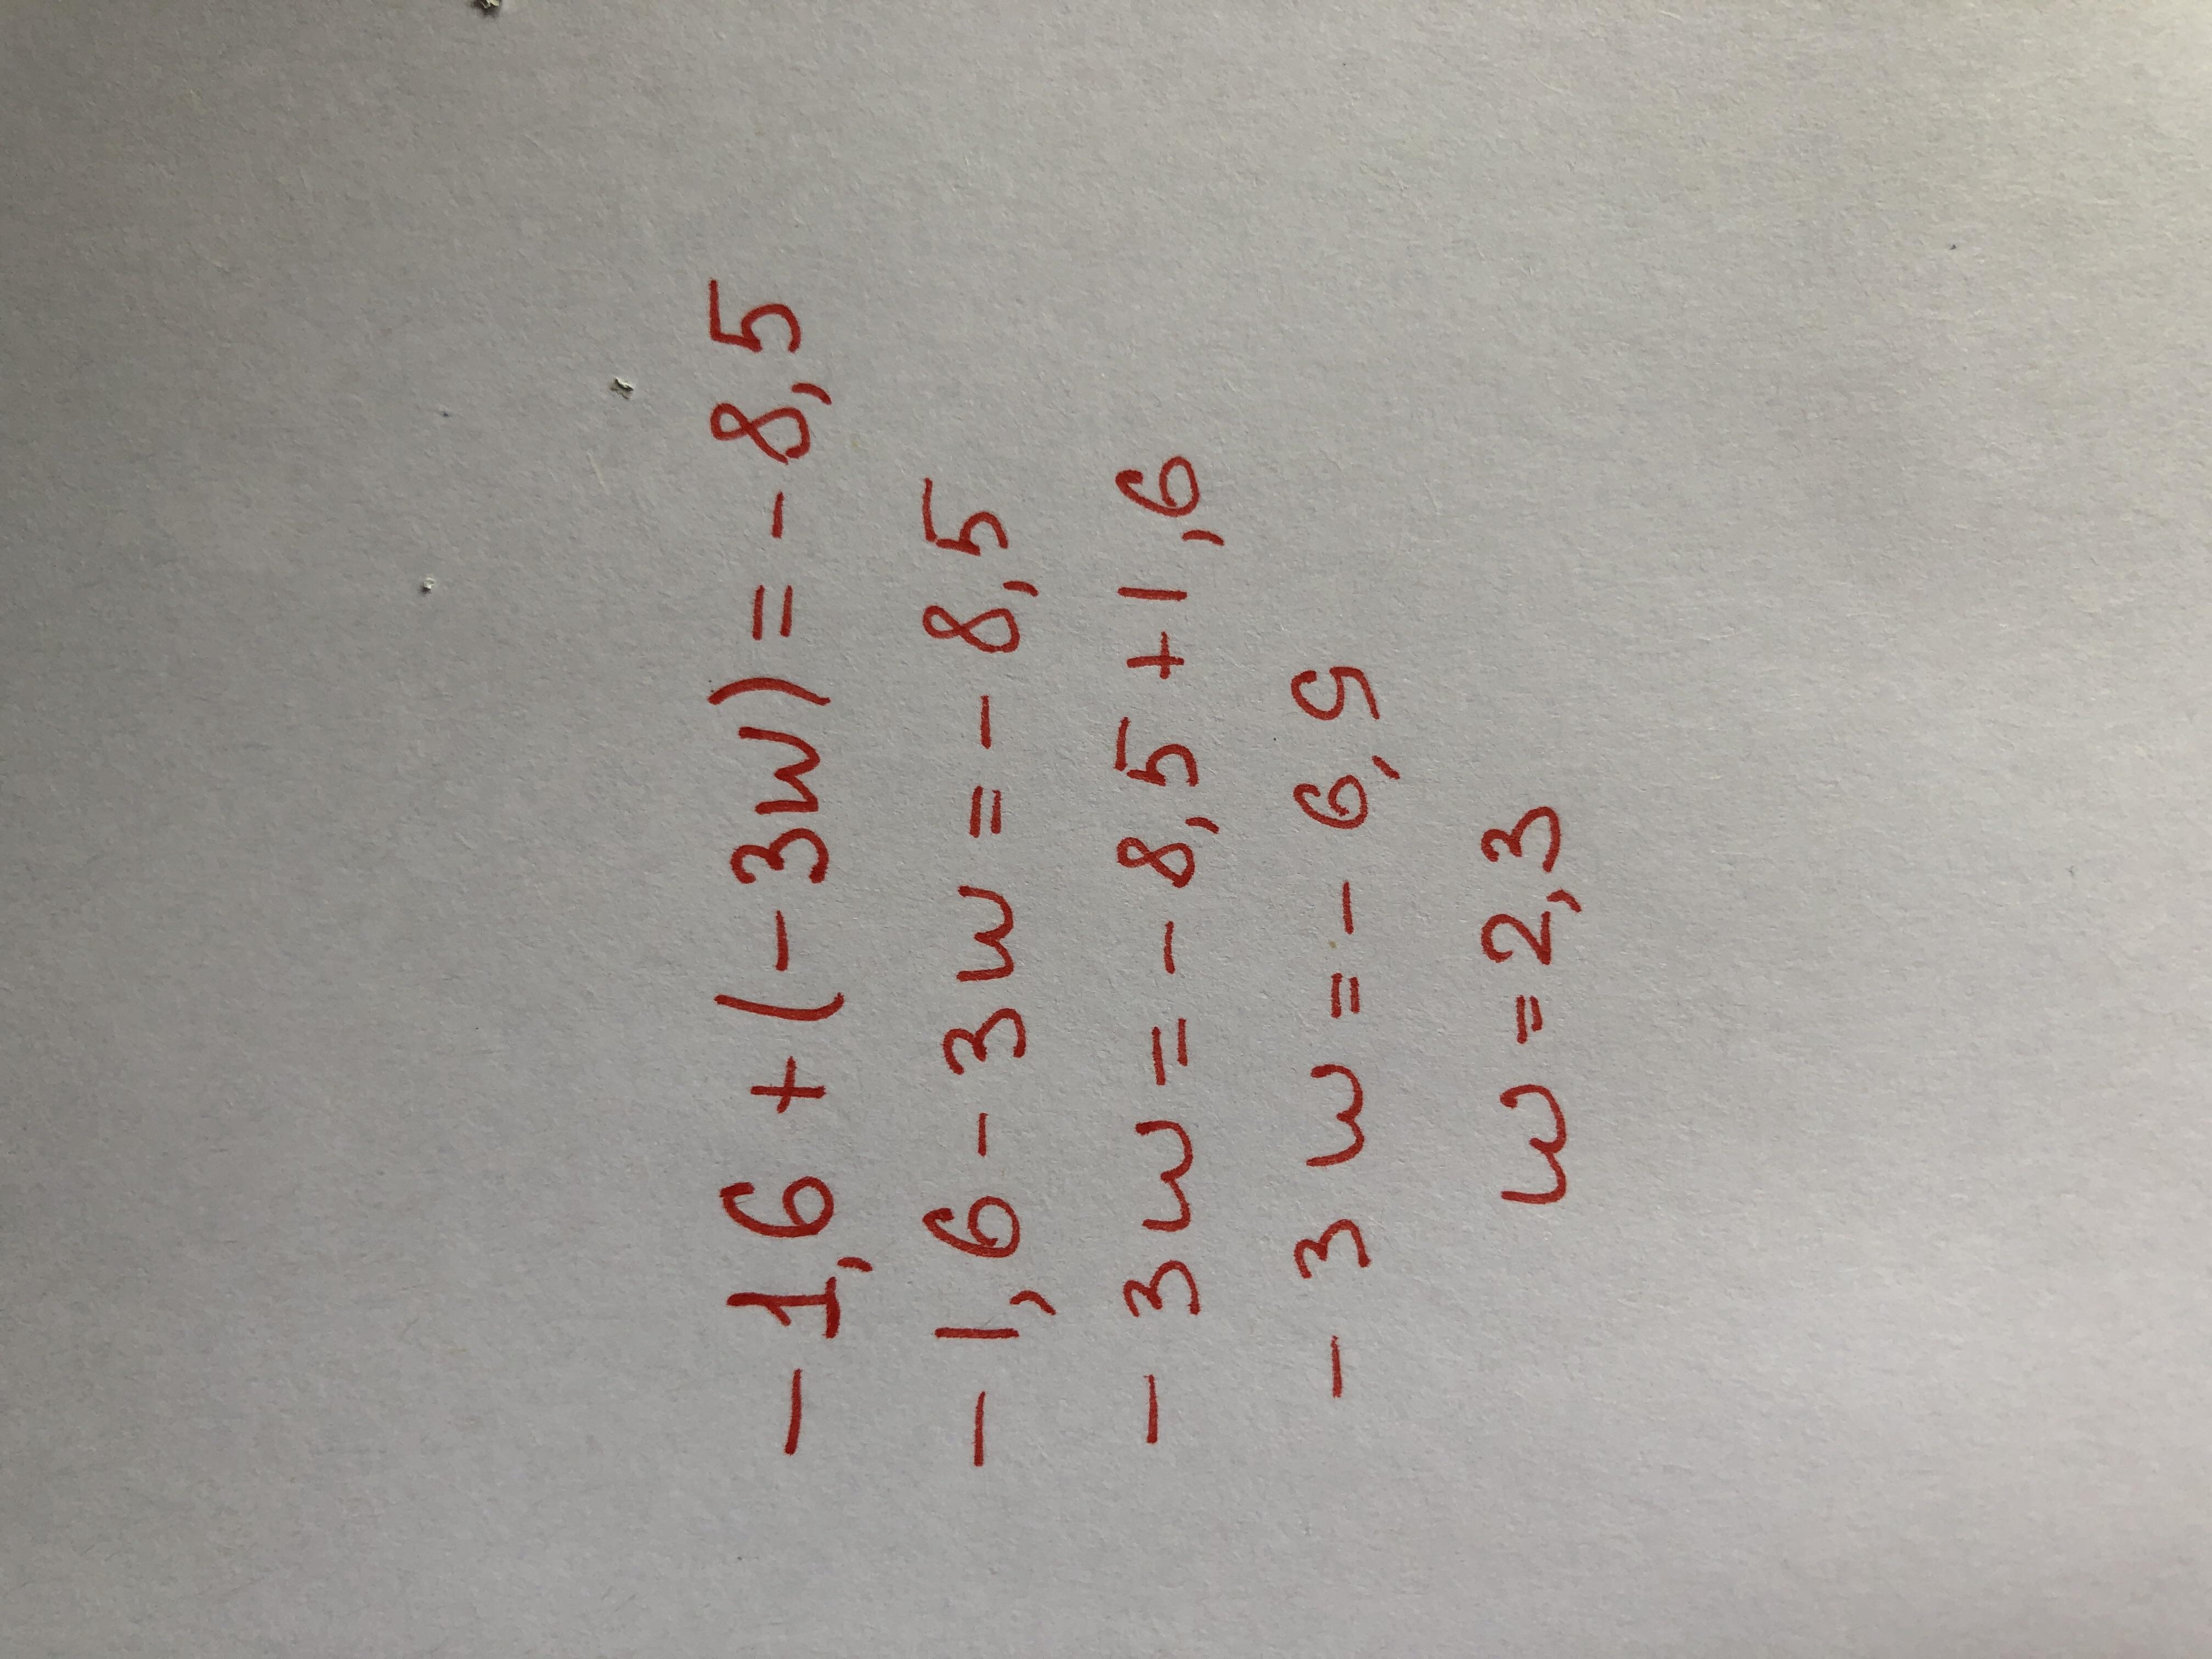 -1,6+(-3w)=-8,5
-1,6-3w=-8,5
-3w=-8,5+1,6
-3w=-6,9
w=2,3